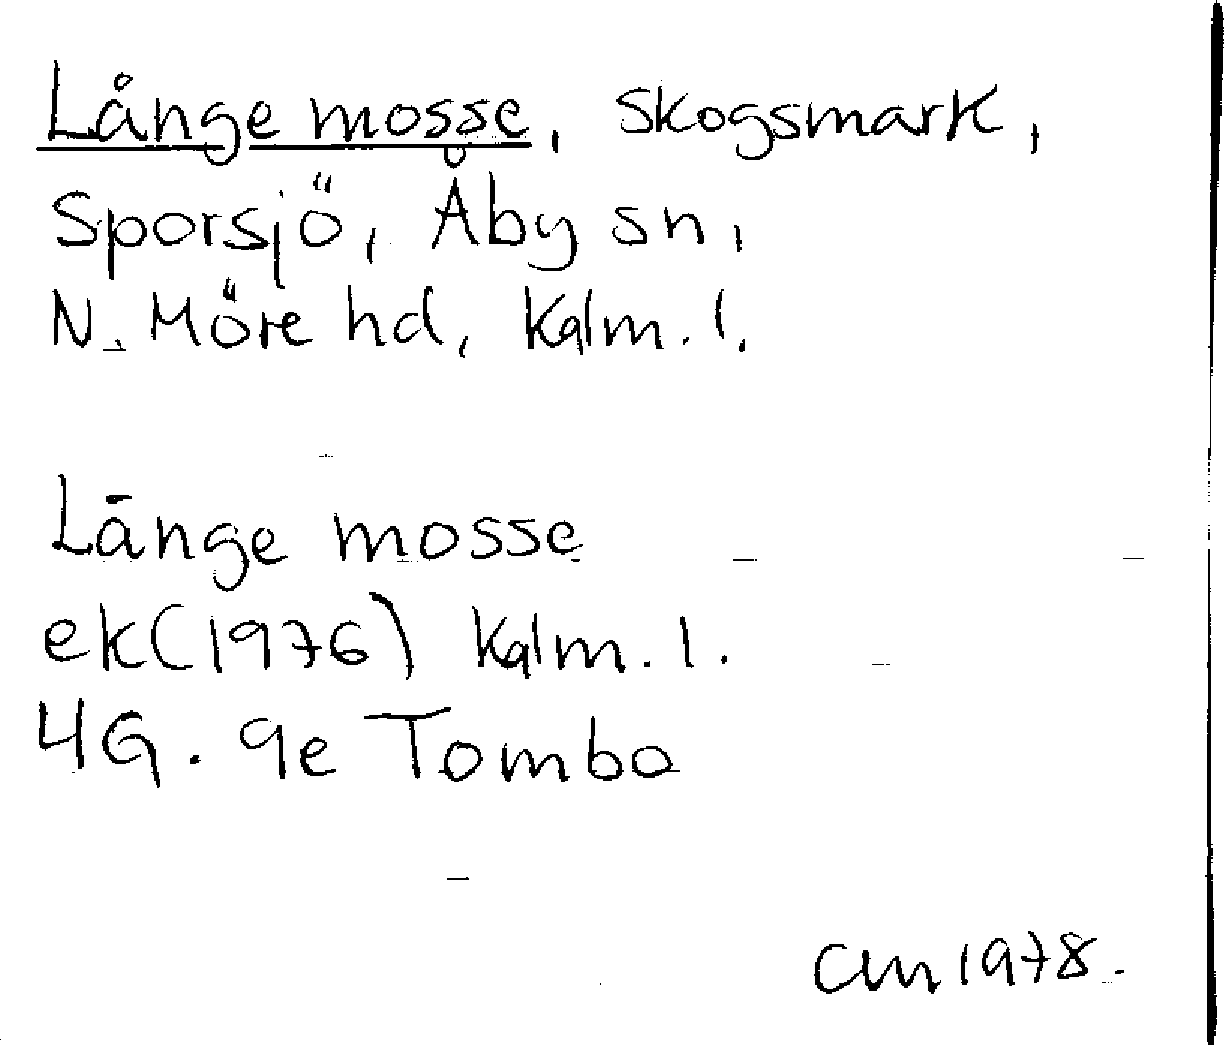 Långe mosse, Skogsmark,
Sporsjö, Åby sn,
N. Möre hd, Kalm. l.
Långe mosse
ek(1976) Kalm. l.
4G. 9e Tombo
CM 1978.